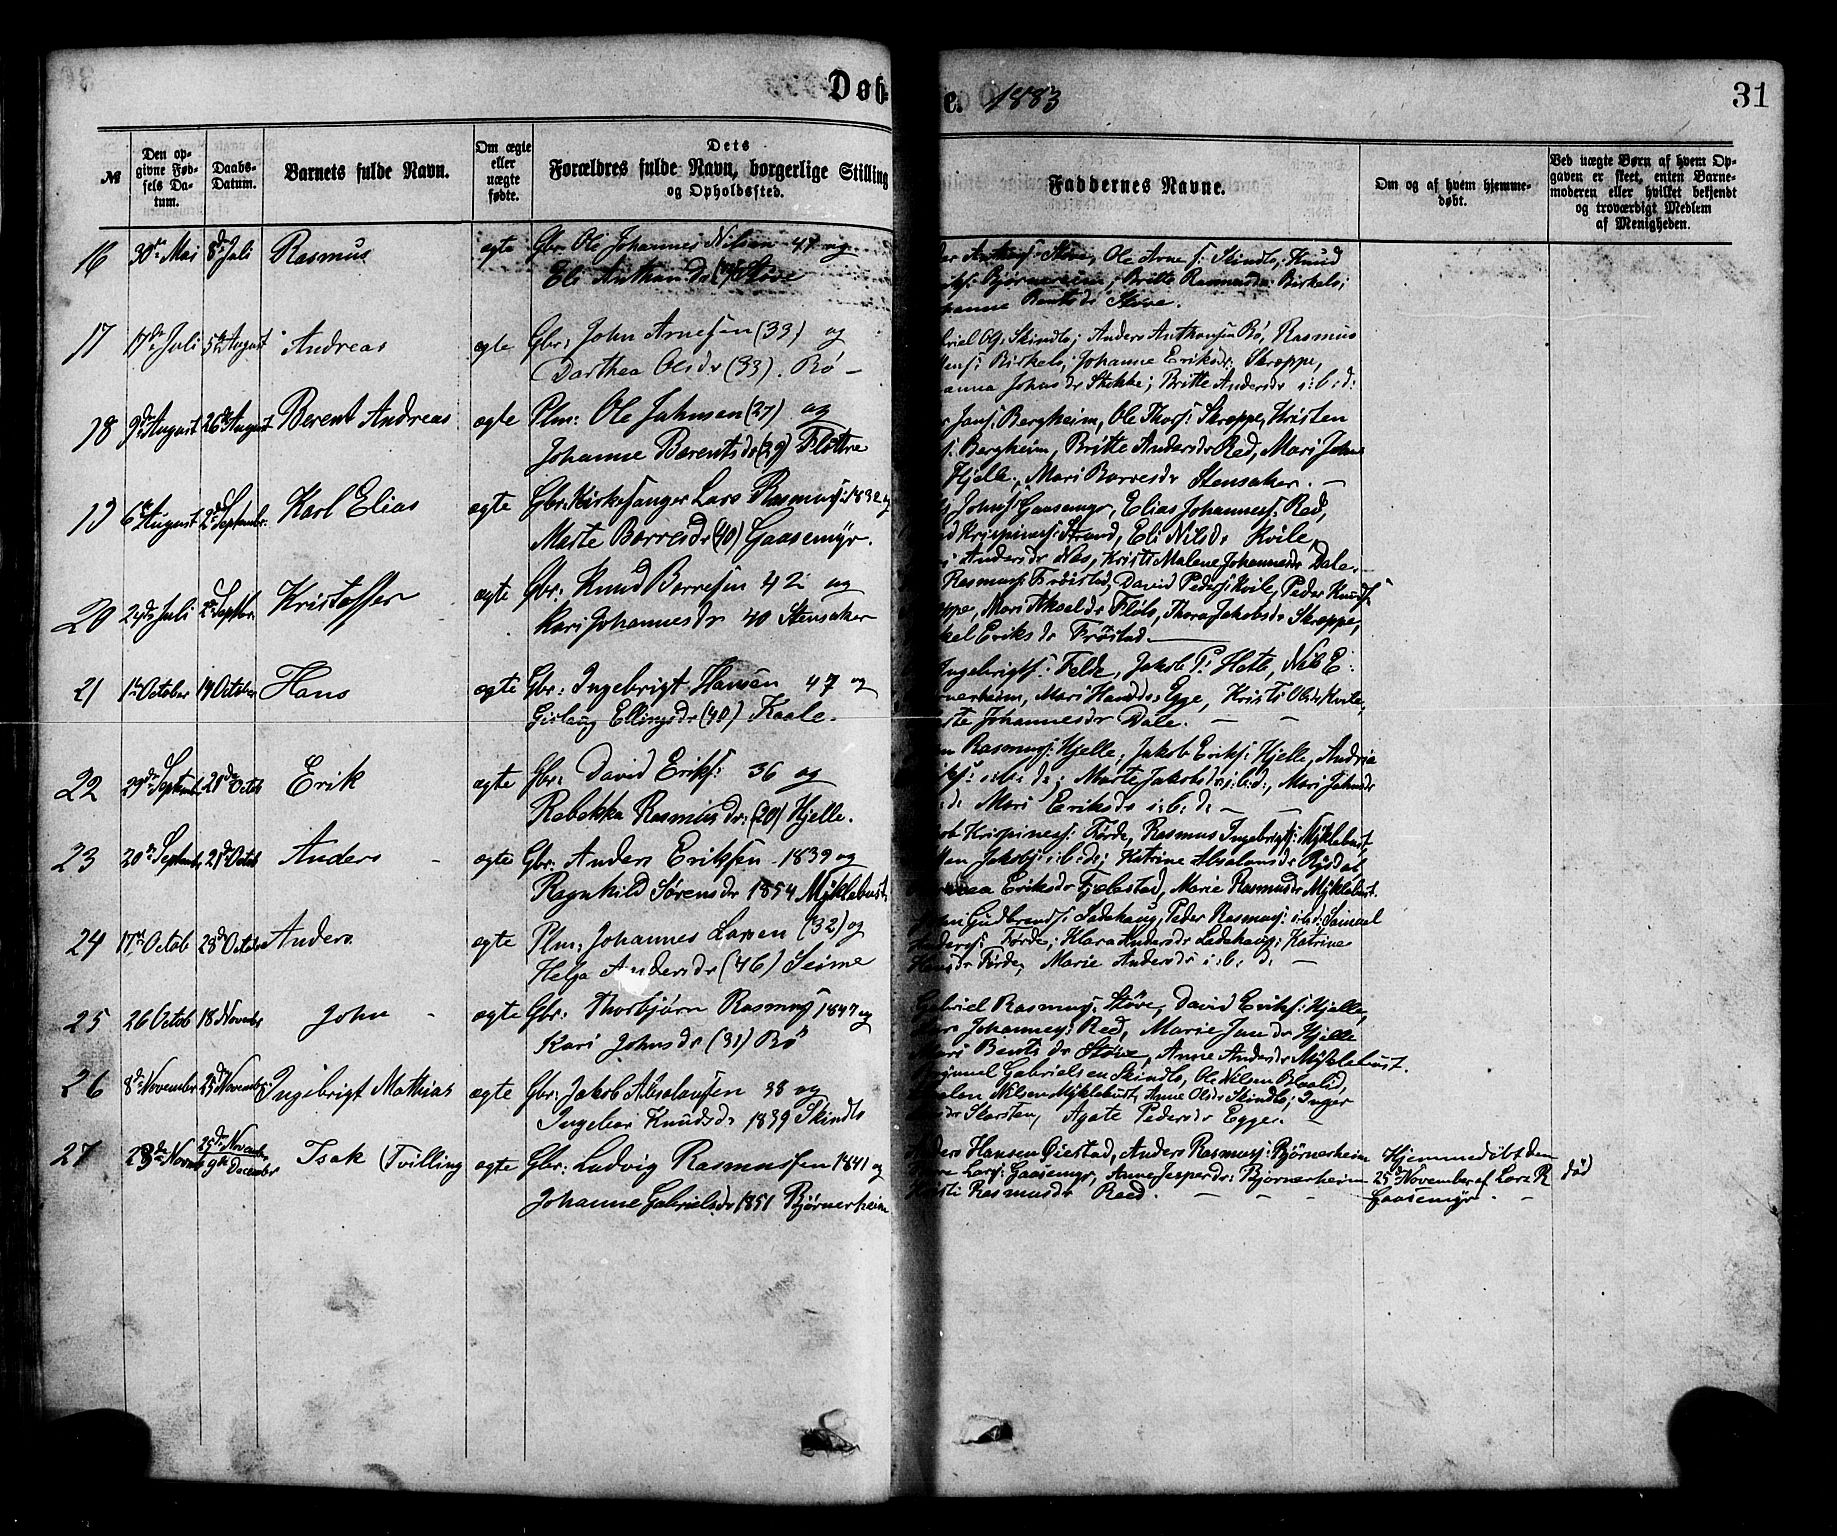 Døb-
e. 1883
31
№
Den op-
givne Fød-
sels Da-
tum.
Daabs-
Datum.
Barnets fulde Navn.
Om ægte
eller
uægte
fødte.
Dets
Forældres fulde Navn, borgerlige Stilling
og Opholdssted.
Faddernes Navne.
Om og af hvem hjemme-
døbt.
Ved uægte Børn af hvem Op-
gaven er skeet, enten Barne-
moderen eller hvilket bekjendt
og troværdigt Medlem
af Menigheden.
16 30te Mai 8de Juli Rasmus ægte Gbr: Ole Johannes Nilsen 47 og
Eli Anthand Støve
Støve, Ole Arne s: Skindlo; Knud
Bjørnereim; Britte Rasmusdr Birkelo;
Bentsdr Støve.
17 17de Juli 5te August Andreas ægte Gbr: John Arnesen (33) og
Dorthea Olsdr (33). Bø -
briel Ols. Skindlo; Anders Anthonsen Bø, Rasmus
ens: Birkelo; Johanne Eriksdr Skreppe,
anna Johnsdr Stokke; Britte Andersdr i:b:d:
18 9de August 26de August Berent Andreas ægte Plm: Ole Johnsen (27) og
Johanne Berentsdr (29) Flöttre
Jans: Bergheim, Ole Thors: Skreppe, Kristen
s: Bergheim, Britte Andersdr Red, Mari Johns
Hjelle, Mari Borresdr Stensaker. -
19 6te August 2den Septembr. Karl Elias ægte Gbr: Kirkesanger Lars Rasmuss: 1832 og
Marte Borresdr (40) Gaasemyr.
Johns: Gaasemyr, Elias Johanness: Red,
d Krispiness: Strand, Eli Nilsdr Kvile,
Andersdr Nes, Kristi Malene Johannesdr Dale. -
20 24de Juli 2den Septbr. Kristoffer ægte Gbr: Knud Borresen 42 og
Kari Johannesdr 40 Stensaker
Rasmuss: Frøistad, David Peders: Kvile, Peder Knuds:
ppe, Mari Akseldr Flølo, Thora Jakobsdr Skreppe,
kel Eriksdr Frøstad
21 1ste October 14 October Hans ægte Gbr: Ingebrigt Hansen 47 og
Gislaug Ellingsdr (40) Kaale.
Ingebrigts: Felde, Jakob P: Hatle, Nils E:
rnerheim, Mari Hansdr Egge, Kristi Olsdr Kvile,
te Johannesdr Dale. - -
22 29de Septemb. 21de Octob Erik ægte Gbr: David Eriks: 36 og
Rebekka Rasmusdr: (20) Hjelle.
n Rasmuss: Hjelle, Jakob Eriks: Hjelle, Andria
s: i:b:d:; Marte Jakobsdr i:b:d:, Mari Johnsdr
:d: Mari Eriksdr i:b:d: - -
23 20de Septemb. 21de Octob Anders - ægte Gbr: Anders Eriksen 1839 og
Ragnhild Sørensdr 1854 Myklebust
ob Krispiness: Førde, Rasmus Ingebrigts: Myklebust,
en Jakobs: i:b:d:; Katrine Absalonsdr Rygdal,
Eriksdr Fjelestad, Marie Rasmusdr Myklebust.
24 17de Octob 28de October Anders. ægte Plm: Johannes Larsen (32) og
Helga Andersdr (46) Seime
Gudbrands: Ladehaug, Peder Rasmuss: i:b:d: Samuel
Anderss: Førde; Klara Andersdr Ladehaug; Katrine
Hansdr Førde, Marie Andersdr i:b:d: -
25 26 Octob 18 Novembr John - ægte Gbr: Thorbjørn Rasmuss 1847 og
Kari Johnsdr (31) Bø
Gabriel Rasmuss: Støve, David Eriks: Hjelle,
Johanness: Red, Marie Jansdr Hjelle
Mari Bentsdr Støve, Anne Andersdr Myklebust.
26 8de November 25de November Ingebrigt Mathias ægte Gbr: Jakob Absalonsen 38 og
Ingebor Knudsdr 1839 Skindlo
Gabrielsen Skindlo, Ole Nilsen Blaalid,
Absalon Nilsen Myklebust, Anne Olsdr Skindlo; Inger
Skorsten, Agate Pedersdr Egge. -
27 23de Novemb 25de November Isak (Tvilling ægte Gbr: Ludvig Rasmussen 1841 og
9de December
Johanne Gabrielsdr 1851 Bjørnerheim
ders Hansen Øiestad, Anders Rasmuss: Bjørnerheim
re Lars: Gaasemyr, Anne Jespersdr: Bjørnerheim
Kristi Rasmusdr Reed. - - -
Hjemmedøbt den
25de November af Lars R
Gaasemyr. -
død